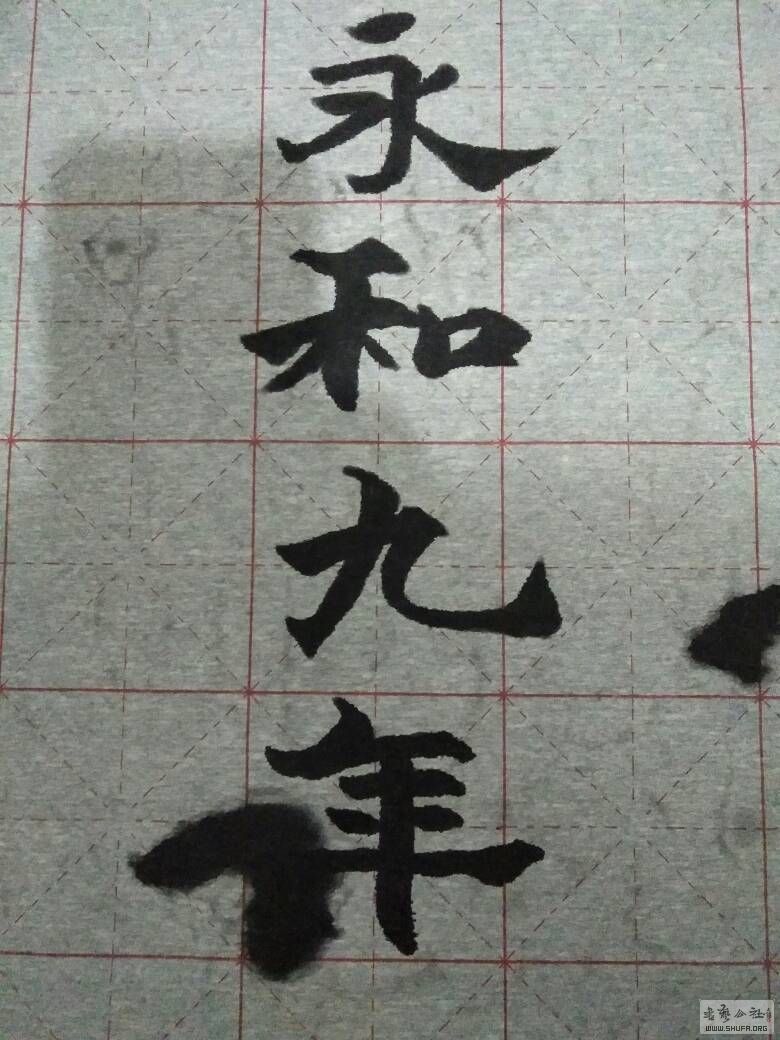 永和九年
书艺公社
WWW.SHUFA.ORG